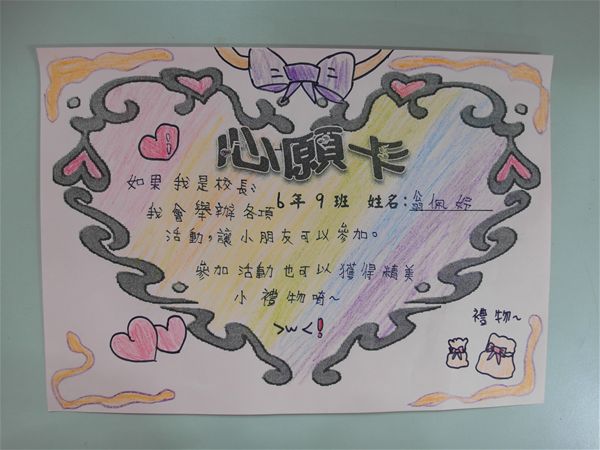 心願卡
6年9班 姓名:翁佩婷
如果我是校長、
我會舉辦各項
活動,讓小朋友可以參加。
參加活動也可以獲得精美
小禮物唷~
>w<!
禮物~